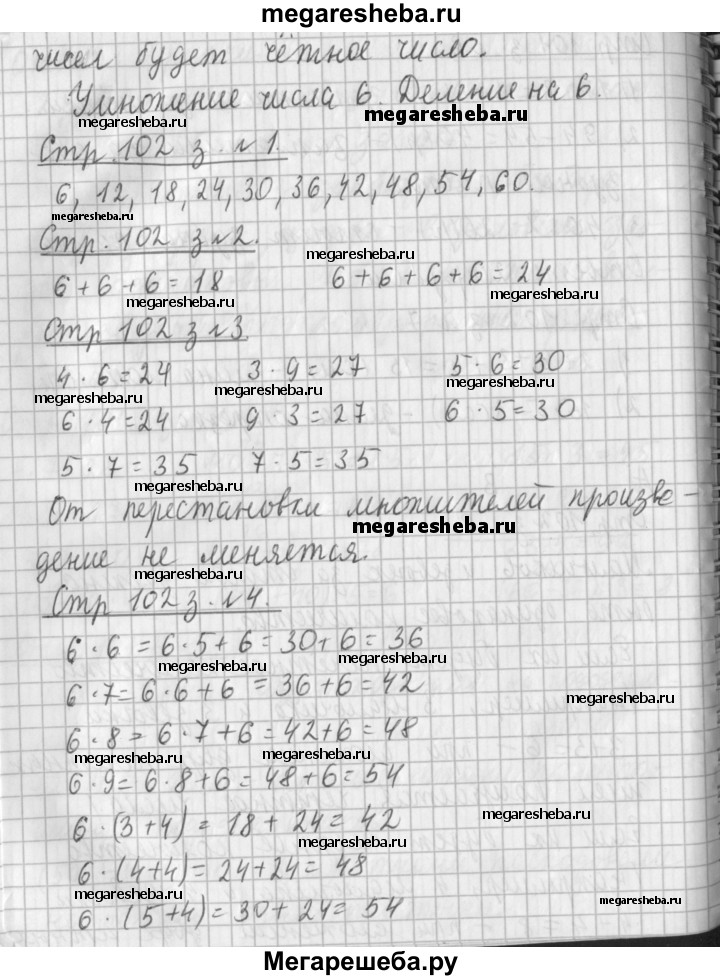 megaresheba.ru
чисел будет чётное число.
Умножение числа 6. Деление на 6.
megaresheba.ru megaresheba.ru
Стр. 102 з. №1.
6, 12, 18, 24, 30, 36, 42, 48, 54, 60.
megaresheba.ru
Стр. 102 з №2.
megaresheba.ru
6 + 6 + 6 = 18 6 + 6 + 6 + 6 = 24
megaresheba.ru megaresheba.ru
Стр 102 з №3
4 · 6 = 24 3 · 9 = 27 5 · 6 = 30
megaresheba.ru megaresheba.ru megaresheba.ru
6 · 4 = 24 9 · 3 = 27 6 · 5 = 30
5 · 7 = 35 7 · 5 = 35
megaresheba.ru megaresheba.ru
От перестановки множителей произве-
megaresheba.ru
дение не меняется.
megaresheba.ru
Стр 102 з. №4.
6 · 6 = 6 · 5 + 6 = 30 + 6 = 36
megaresheba.ru megaresheba.ru
6 · 7 = 6 · 6 + 6 = 36 + 6 = 42
megaresheba.ru megaresheba.ru
6 · 8 = 6 · 7 + 6 = 42 + 6 = 48
megaresheba.ru megaresheba.ru
6 · 9 = 6 · 8 + 6 = 48 + 6 = 54
megaresheba.ru
6 · (3 + 4) = 18 + 24 = 42
megaresheba.ru
6 · (4 + 4) = 24 + 24 = 48
megaresheba.ru megaresheba.ru
6 · (5 + 4) = 30 + 24 = 54
megaresheba.ru
Мегарешеба.ру